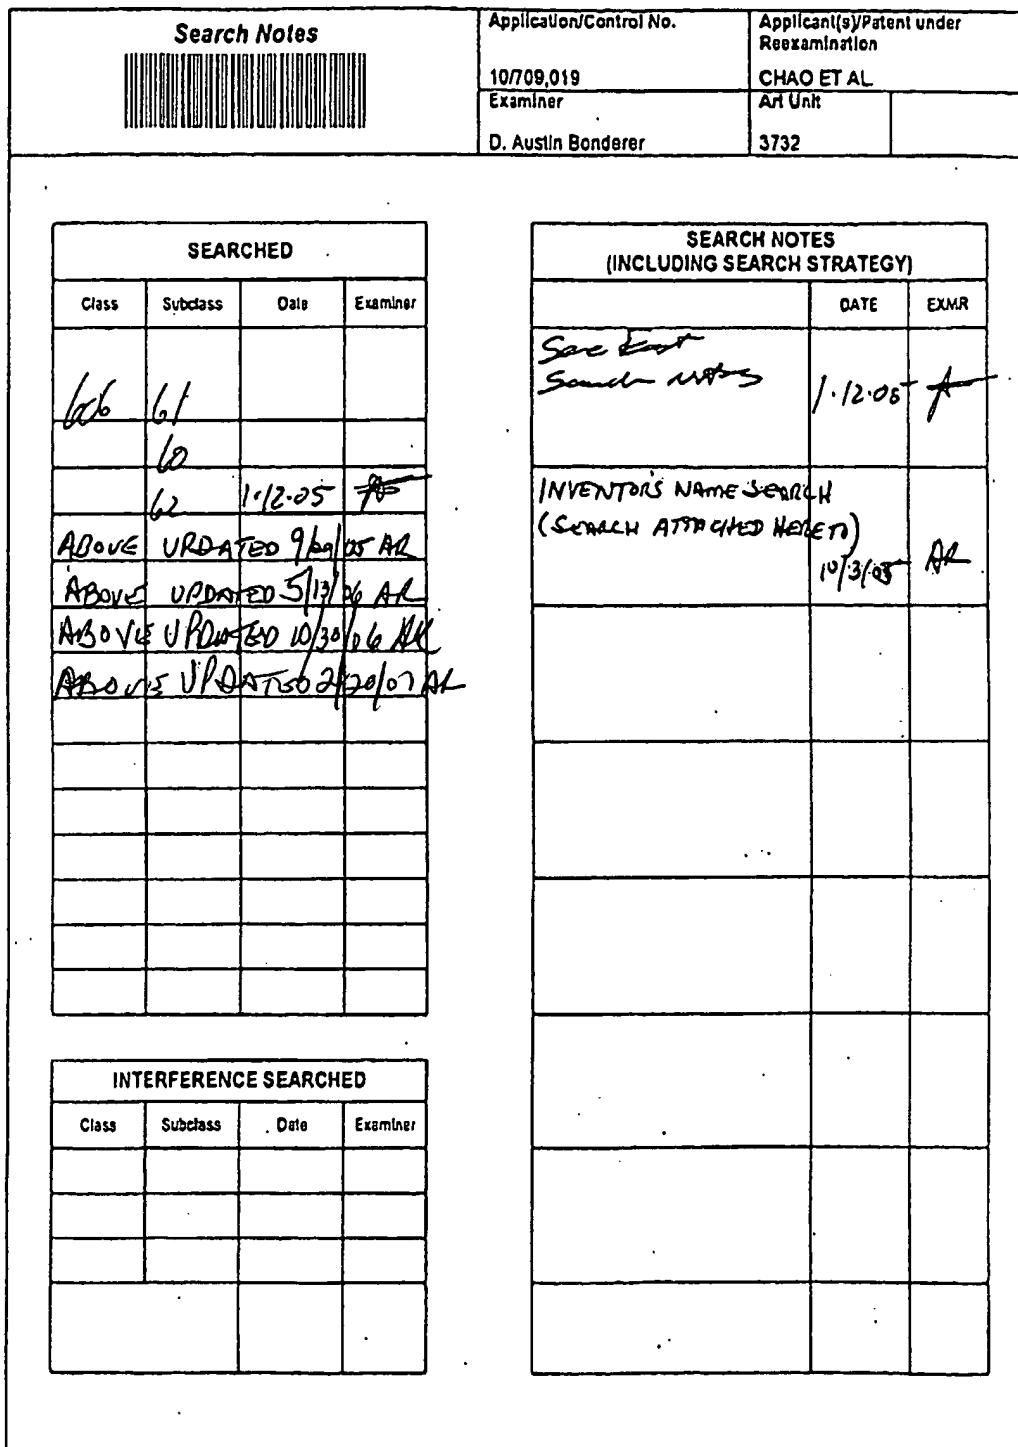 Search Notes
Application/Control No.
10/709,019
Applicant(s)/Patent under
Reexamination
CHAO ET AL.
Examiner
D. Austin Bonderer
Art Unit
3732
SEARCHED
Class Subclass Date Examiner
606 61
60
62 1.12.05
ABOVE UPDATED 9/29/05 AR
ABOVE UPDATED 5/13/06 AR
ABOVE UPDATED 10/30/06 AR
ABOVE UPDATED 2/20/07 AR
INTERFERENCE SEARCHED
Class Subclass Date Examiner
SEARCH NOTES
(INCLUDING SEARCH STRATEGY)
DATE EXMR
See East
Search notes 1.12.05
INVENTOR'S NAME SEARCH
(SEARCH ATTACHED HERETO)
10/3/05 AR